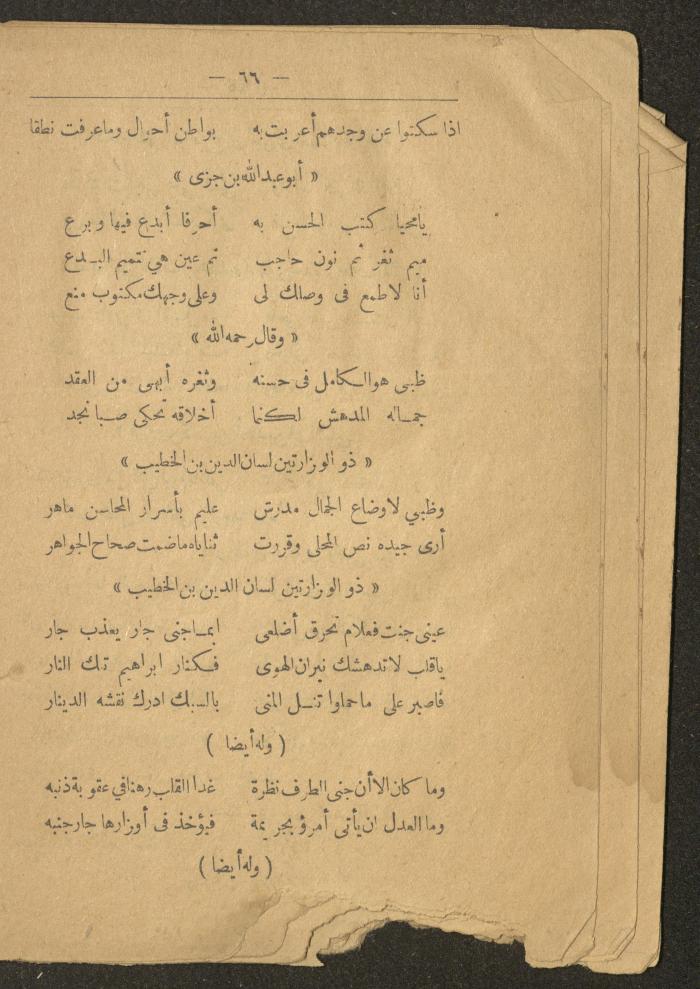 — ٦٦ —
اذا سكتوا عن وجدهم أعربت به بواطن أحوال وما عرفت نطقا
« أبو عبد الله بن جزى »
يا محيا كتب الحسن به أحرفا أبدع فيها وبرع
ميم ثغر ثم نون حاجب ثم عين هي تتميم البدع
أنا لا طمع فى وصالك لى وعلى وجهك مكتوب منع
« وقال رحمه الله »
ظبى هو الكامل فى حسنه وثغره أبهى من العقد
جماله المدهش لكنما أخلاقه تحكى صبا نجد
« ذو الوزارتين لسان الدين بن الخطيب »
وظبي لاوضاع الجمال مدرش عليم بأسرار المحاسن ماهر
أرى جيده نص المحلى وقررت ثناياه ما ضمت صحاح الجواهر
« ذو الوزارتين لسان الدين بن الخطيب »
عينى جنت فعلام تحرق أضلعى ابما جنى جار يعذب جار
ياقلب لا تدهشك نيران الهوى فكنار ابراهيم تلك النار
فاصبر على ما حملوا تنل المنى بالسبك ادرك نقشه الدينار
( وله أيضا )
وما كان الا أن جنى الطرف نظرة غدا القلب رهنا في عقوبة ذنبه
وما العدل ان يأتى أمرؤ بجريمة فيؤخذ فى أوزارها جار جنبه
( وله أيضا )